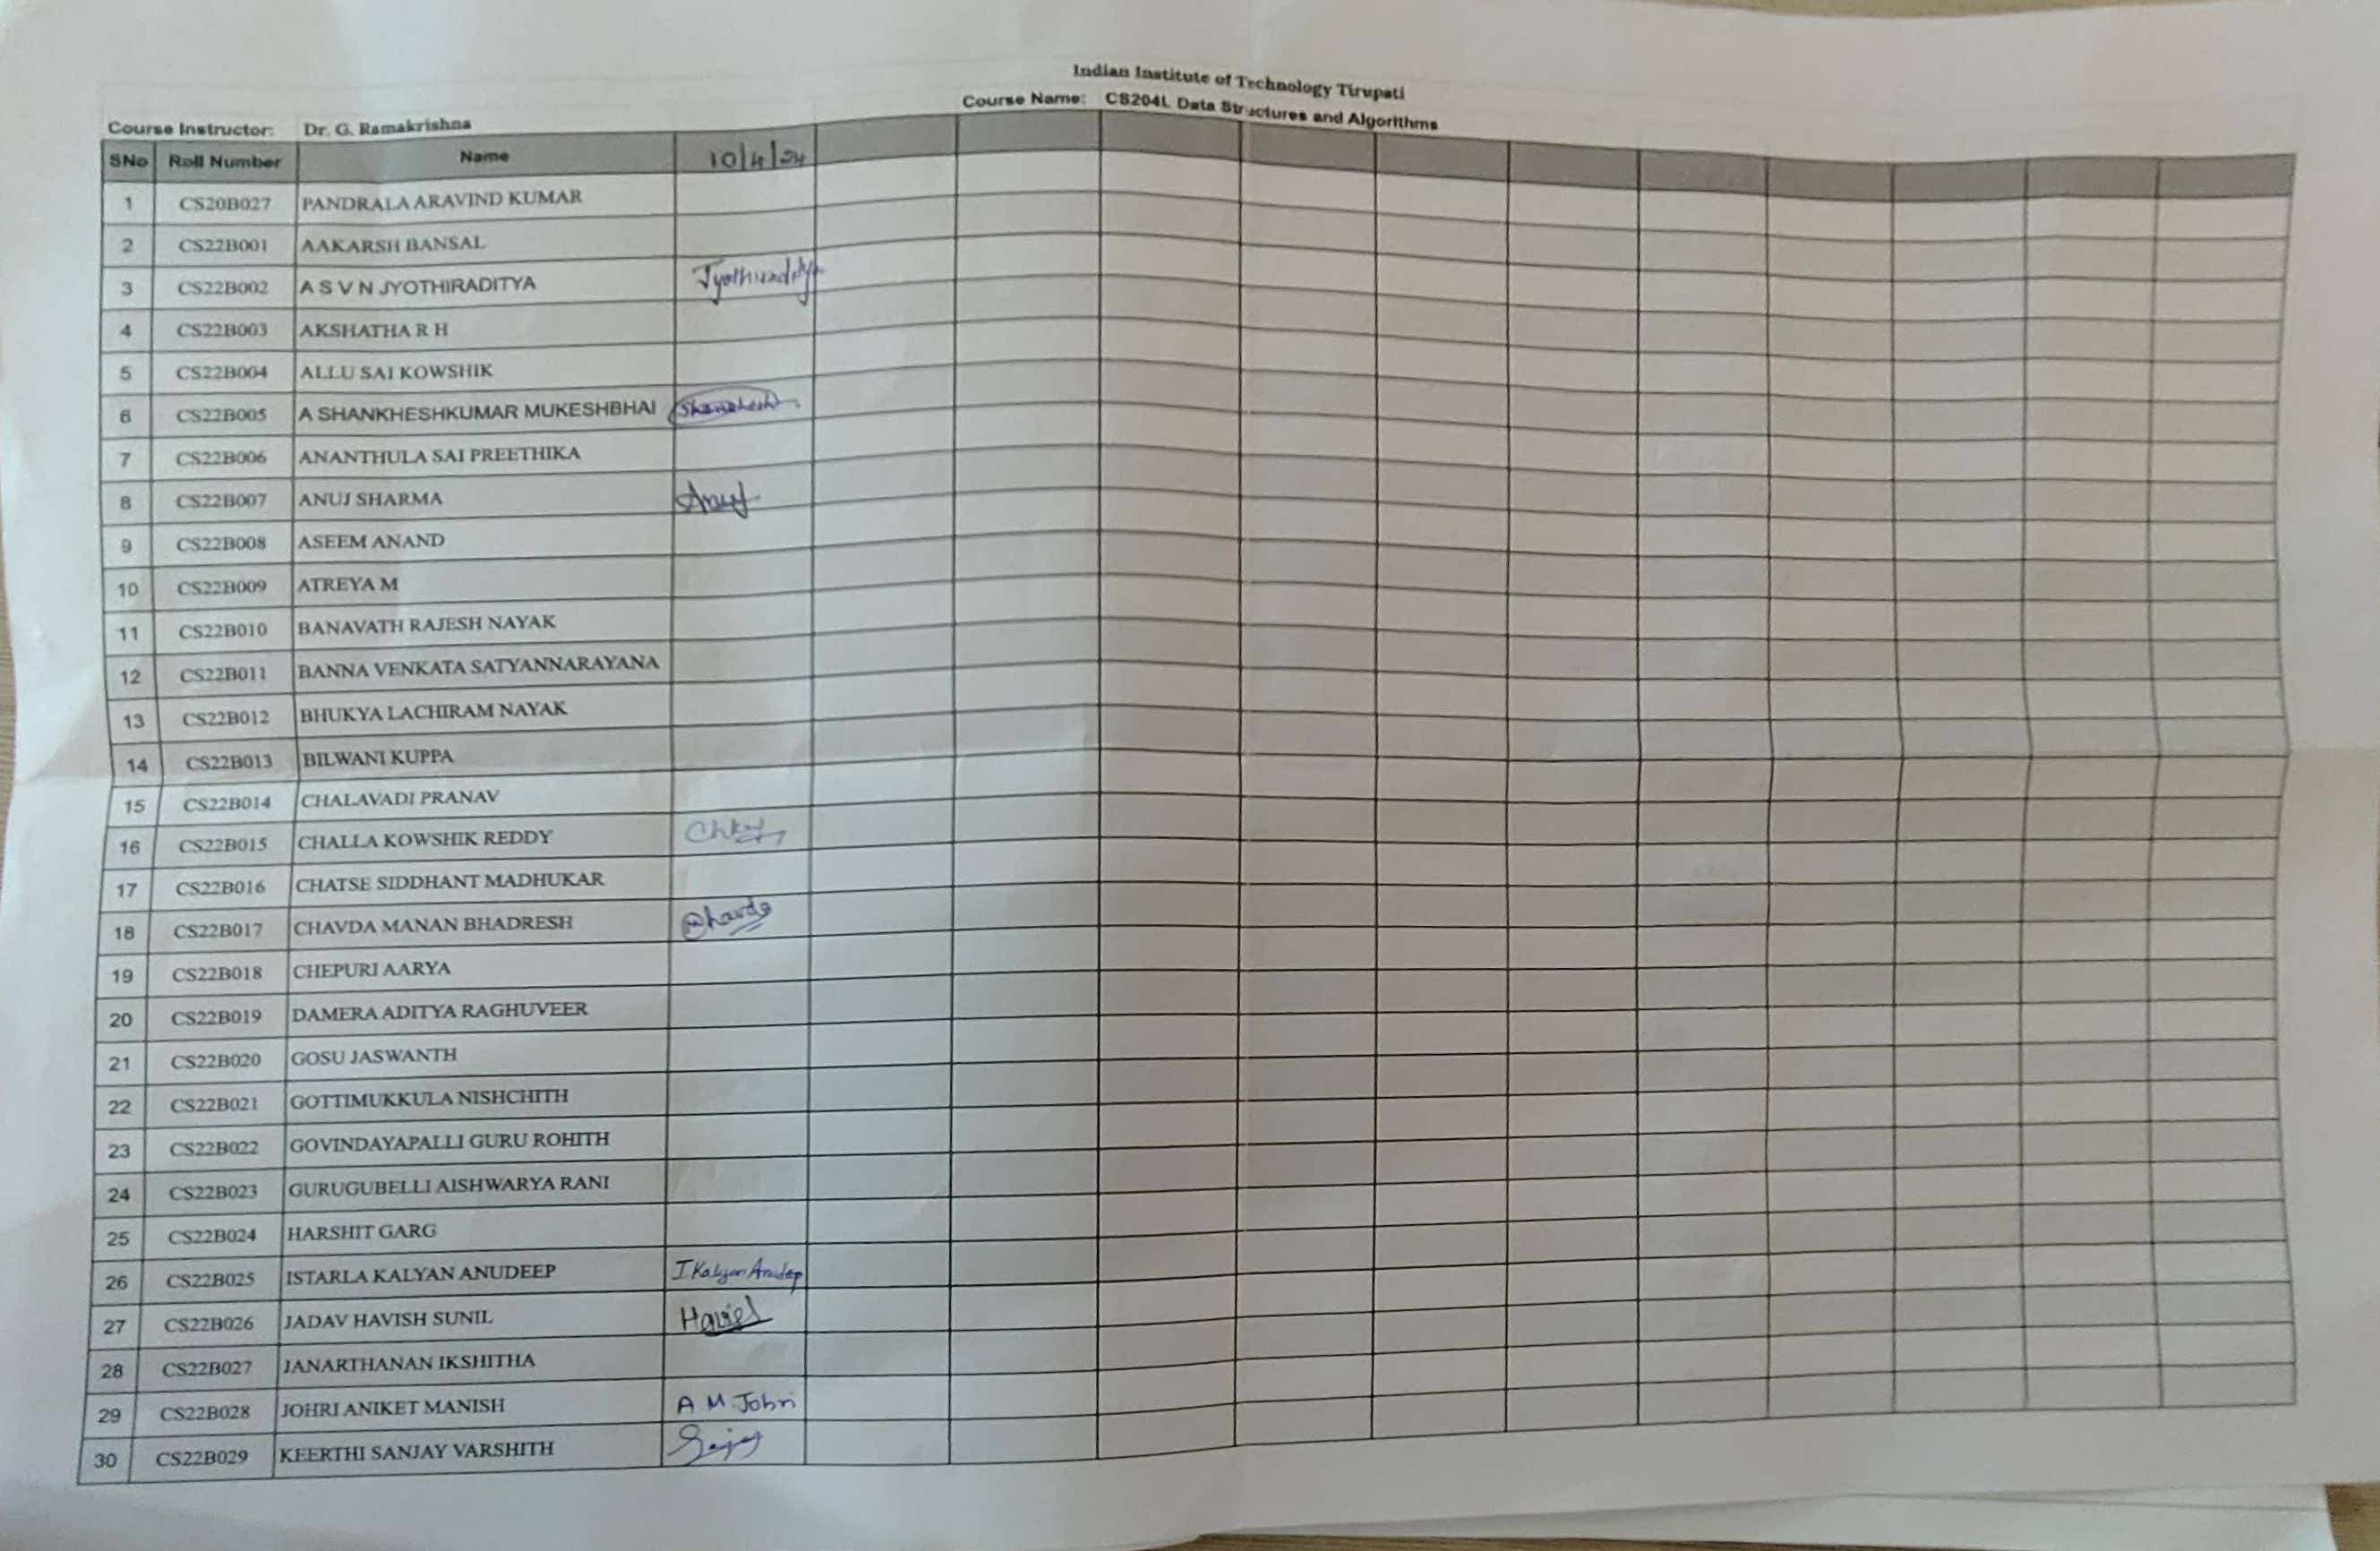 Indian Institute of Technology Tirupati
Course Instructor: Dr. G. Ramakrishna Course Name: CS204L Data Structures and Algorithms
SNo Roll Number Name 10/4/24
1 CS20B027 PANDRALA ARAVIND KUMAR
2 CS22B001 AAKARSH BANSAL
3 CS22B002 A S V N JYOTHIRADITYA Jyothiraditya
4 CS22B003 AKSHATHA R H
5 CS22B004 ALLU SAI KOWSHIK
6 CS22B005 A SHANKHESHKUMAR MUKESHBHAI Shankhesh
7 CS22B006 ANANTHULA SAI PREETHIKA
8 CS22B007 ANUJ SHARMA Anuj
9 CS22B008 ASEEM ANAND
10 CS22B009 ATREYA M
11 CS22B010 BANAVATH RAJESH NAYAK
12 CS22B011 BANNA VENKATA SATYANNARAYANA
13 CS22B012 BHUKYA LACHIRAM NAYAK
14 CS22B013 BILWANI KUPPA
15 CS22B014 CHALAVADI PRANAV
16 CS22B015 CHALLA KOWSHIK REDDY
17 CS22B016 CHATSE SIDDHANT MADHUKAR
18 CS22B017 CHAVDA MANAN BHADRESH Chavda
19 CS22B018 CHEPURI AARYA
20 CS22B019 DAMERA ADITYA RAGHUVEER
21 CS22B020 GOSU JASWANTH
22 CS22B021 GOTTIMUKKULA NISHCHITH
23 CS22B022 GOVINDAYAPALLI GURU ROHITH
24 CS22B023 GURUGUBELLI AISHWARYA RANI
25 CS22B024 HARSHIT GARG
26 CS22B025 ISTARLA KALYAN ANUDEEP I.Kalyan Anudeep
27 CS22B026 JADAV HAVISH SUNIL Havish
28 CS22B027 JANARTHANAN IKSHITHA
29 CS22B028 JOHRI ANIKET MANISH A M Johri
30 CS22B029 KEERTHI SANJAY VARSHITH Sanjay